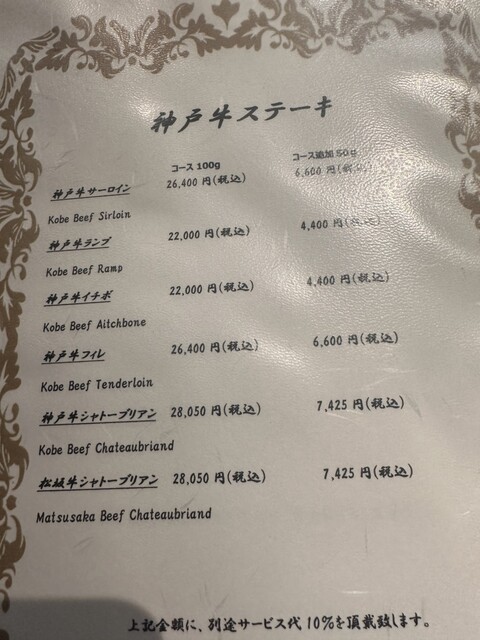 神戸牛ステーキ
コース 100g コース追加 50g
神戸牛サーロイン 26,400 円(税込) 6,600 円(税込)
Kobe Beef Sirloin
神戸牛ランプ 22,000 円(税込) 4,400 円(税込)
Kobe Beef Ramp
神戸牛イチボ 22,000 円(税込) 4,400 円(税込)
Kobe Beef Aitchbone
神戸牛フィレ 26,400 円(税込) 6,600 円(税込)
Kobe Beef Tenderloin
神戸牛シャトーブリアン 28,050 円(税込) 7,425 円(税込)
Kobe Beef Chateaubriand
松坂牛シャトーブリアン 28,050 円(税込) 7,425 円(税込)
Matsusaka Beef Chateaubriand
上記金額に、別途サービス代 10%を頂戴致します。